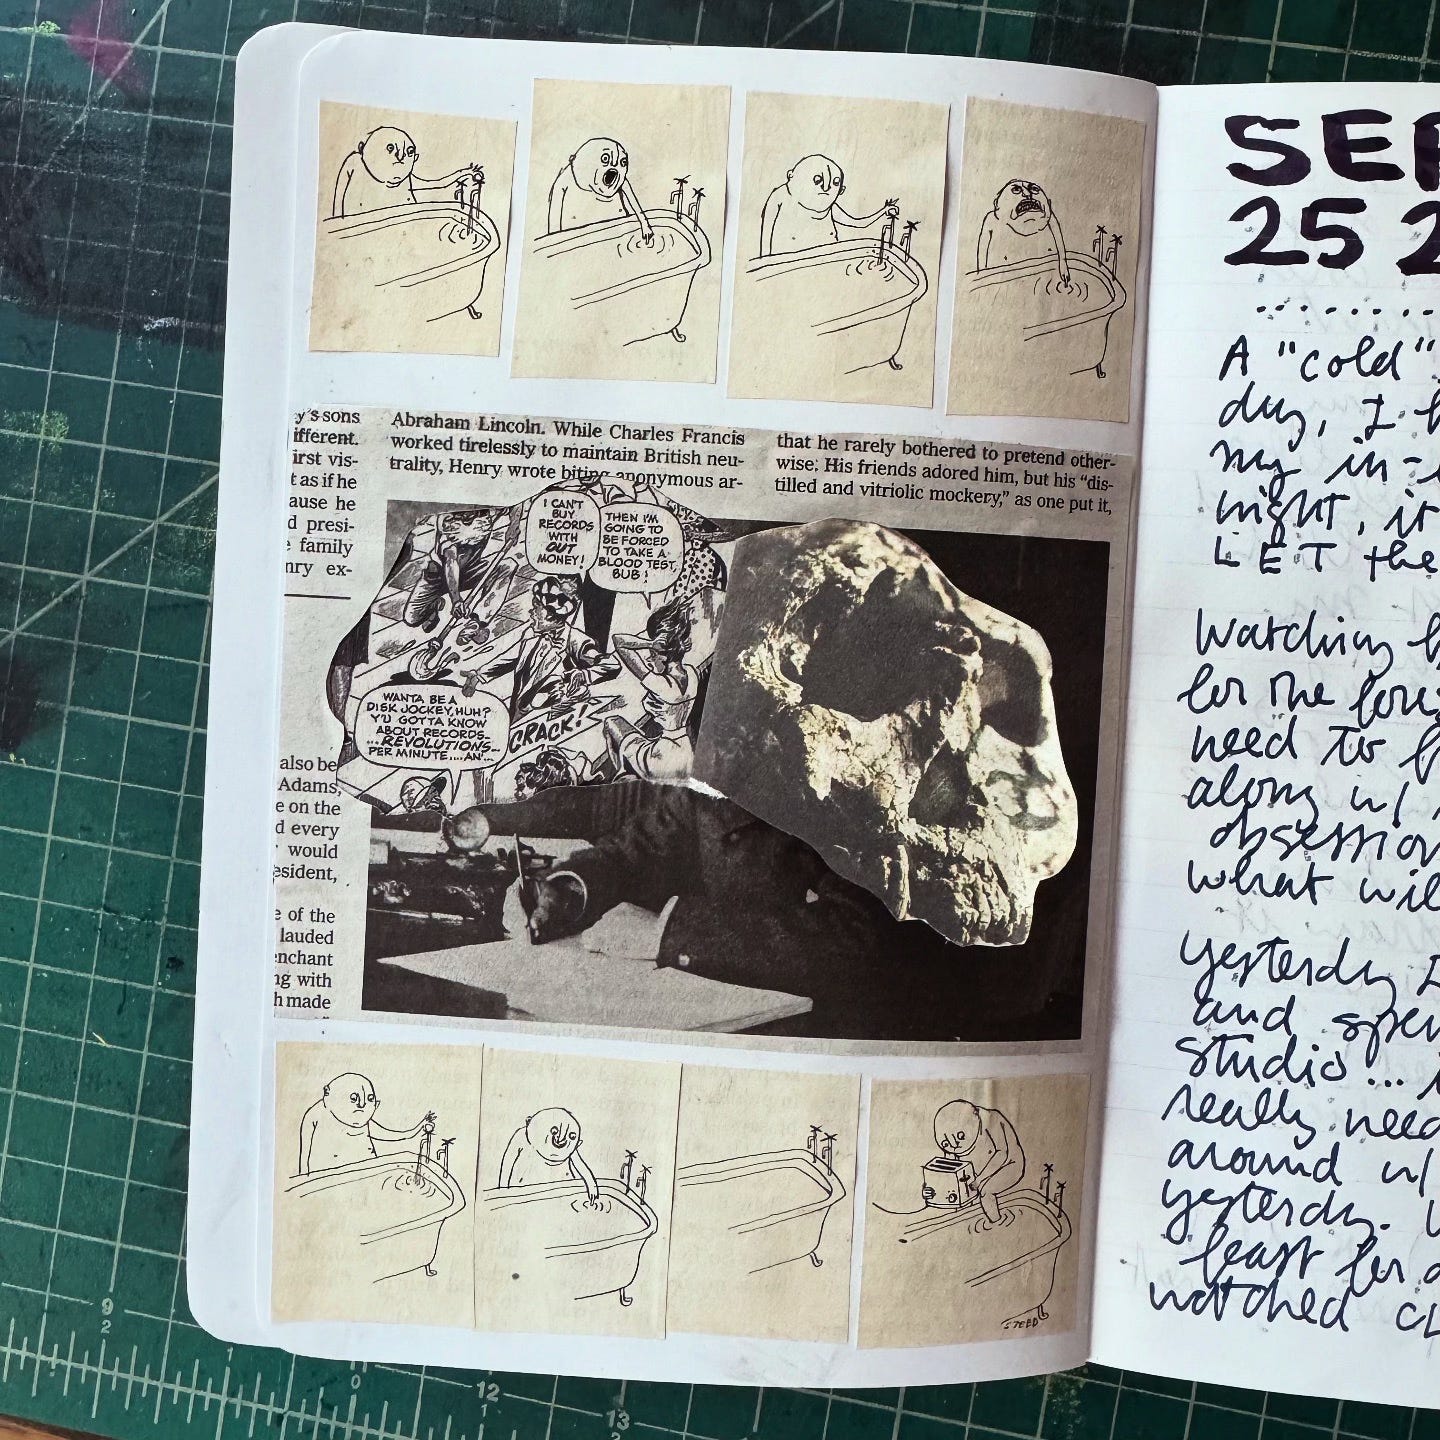 y's sons
ifferent.
irst vis-
t as if he
ause he
d presi-
e family
nry ex-
Abraham Lincoln. While Charles Francis
worked tirelessly to maintain British neu-
trality, Henry wrote biting anonymous ar-
that he rarely bothered to pretend other-
wise: His friends adored him, but his "dis-
tilled and vitriolic mockery," as one put it,
I CAN'T
BUY
RECORDS
WITH
OUT
MONEY!
THEN I'M
GOING TO
BE FORCED
TO TAKE A
BLOOD TEST,
BUB!
WANTA BE A
DISK JOCKEY, HUH?
Y'U GOTTA KNOW
ABOUT RECORDS...
...REVOLUTIONS...
PER MINUTE....AN'...
CRACK!
also be
Adams,
e on the
d every
would
esident,
e of the
lauded
enchant
ng with
h made
STEED
SEP
25 2
A "cold"
day, I
my in-
night, it
LET the
Watching
for the
need to
along w/
obsession
what wil
yesterday I
and spen
studio...
really need
around w/
yesterday.
feast for a
watched CL
9
2
0
12
13